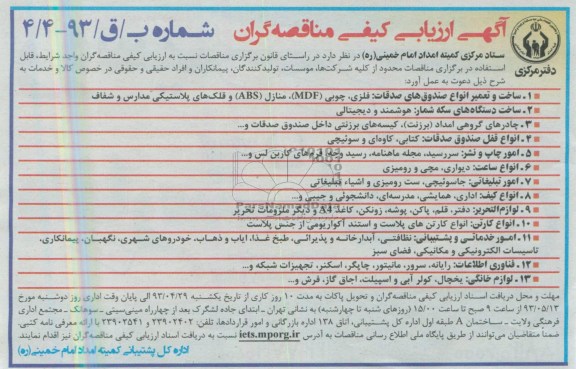 آگهی ارزیابی کیفی مناقصه‌گران شماره ب/ق/۹۳-۴/۴
دفتر مرکزی
ستاد مرکزی کمیته امداد امام خمینی(ره) در نظر دارد در راستای قانون برگزاری مناقصات نسبت به ارزیابی کیفی مناقصه‌گران واجد شرایط، قابل
استفاده در برگزاری مناقصات محدود از کلیه شرکت‌ها، موسسات، تولیدکنندگان، پیمانکاران و افراد حقیقی و حقوقی در خصوص کالا و خدمات به
شرح ذیل دعوت به عمل آورد:
۱- ساخت و تعمیر انواع صندوق‌های صدقات: فلزی، چوبی (MDF)، منازل (ABS) و قلک‌های پلاستیکی مدارس و شفاف
۲- ساخت دستگاه‌های سکه شمار: هوشمند و دیجیتالی
۳- چادرهای گروهی امداد (برزنت)، کیسه‌های برزنتی داخل صندوق صدقات و...
۴- انواع قفل صندوق صدقات: کتابی، کاوه‌ای و سوئیچی
۵- امور چاپ و نشر: سررسید، مجله ماهنامه، رسید و انواع فرم‌های کاربن لس و...
۶- انواع ساعت: دیواری، مچی و رومیزی
۷- امور تبلیغاتی: جاسوئیچی، ست رومیزی و اشیاء تبلیغاتی
۸- انواع کیف: اداری، همایشی، مدرسه‌ای، دانشجوئی و جیبی و...
۹- لوازم‌التحریر: دفتر، قلم، پاکن، پوشه، زونکن، کاغذ A4 و دیگر ملزومات تحریر
۱۰- انواع کارتن: انواع کارتن های پلاست و استند آکواریومی از جنس پلاست
۱۱- امور خدماتی و پشتیبانی: نظافتی، آبدارخانه و پذیرائی، طبخ غذا، ایاب و ذهاب، خودروهای شهری، نگهبان، پیمانکاری،
تاسیسات الکترونیکی و مکانیکی، فضای سبز
۱۲- فناوری اطلاعات: رایانه، سرور، مانیتور، چاپگر، اسکنر، تجهیزات شبکه و...
۱۳- لوازم خانگی: یخچال، کولر آبی و اسپیلت، اجاق گاز، فرش و...
مهلت و محل دریافت اسناد ارزیابی کیفی مناقصه‌گران و تحویل پاکات به مدت ۱۰ روز کاری از تاریخ یکشنبه ۹۳/۰۴/۲۹ الی پایان وقت اداری روز دوشنبه مورخ
۹۳/۰۵/۱۳ از ساعت ۹ صبح تا ساعت ۱۵/۰۰ (روزهای شنبه تا چهارشنبه) به نشانی تهران - ابتدای جاده لشگرک بعد از چهارراه مینی‌سیتی - سوهانک - مجتمع اداری
فرهنگی ولایت - ساختمان A طبقه اول اداره کل پشتیبانی، اتاق ۱۳۸ اداره بازرگانی و امور قراردادها، تلفن: ۲۳۹۰۲۴۰۲ و ۲۳۹۰۲۵۴۱ با ارائه معرفی نامه کتبی.
ضمنا متقاضیان می‌توانند از طریق پایگاه ملی اطلاع رسانی مناقصات به آدرس iets.mporg.ir نسبت به دریافت اسناد ارزیابی کیفی مناقصه‌گران نیز اقدام نمایند.
اداره کل پشتیبانی کمیته امداد امام خمینی(ره)